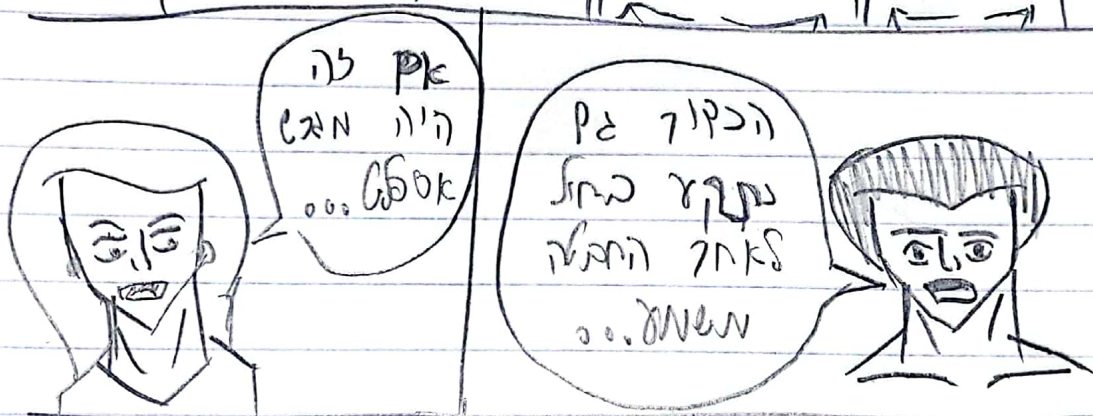 הכדור גם
נתקע בחול
לאחר החבטה
משמע...
אם זה
היה מגרש
אספלט...